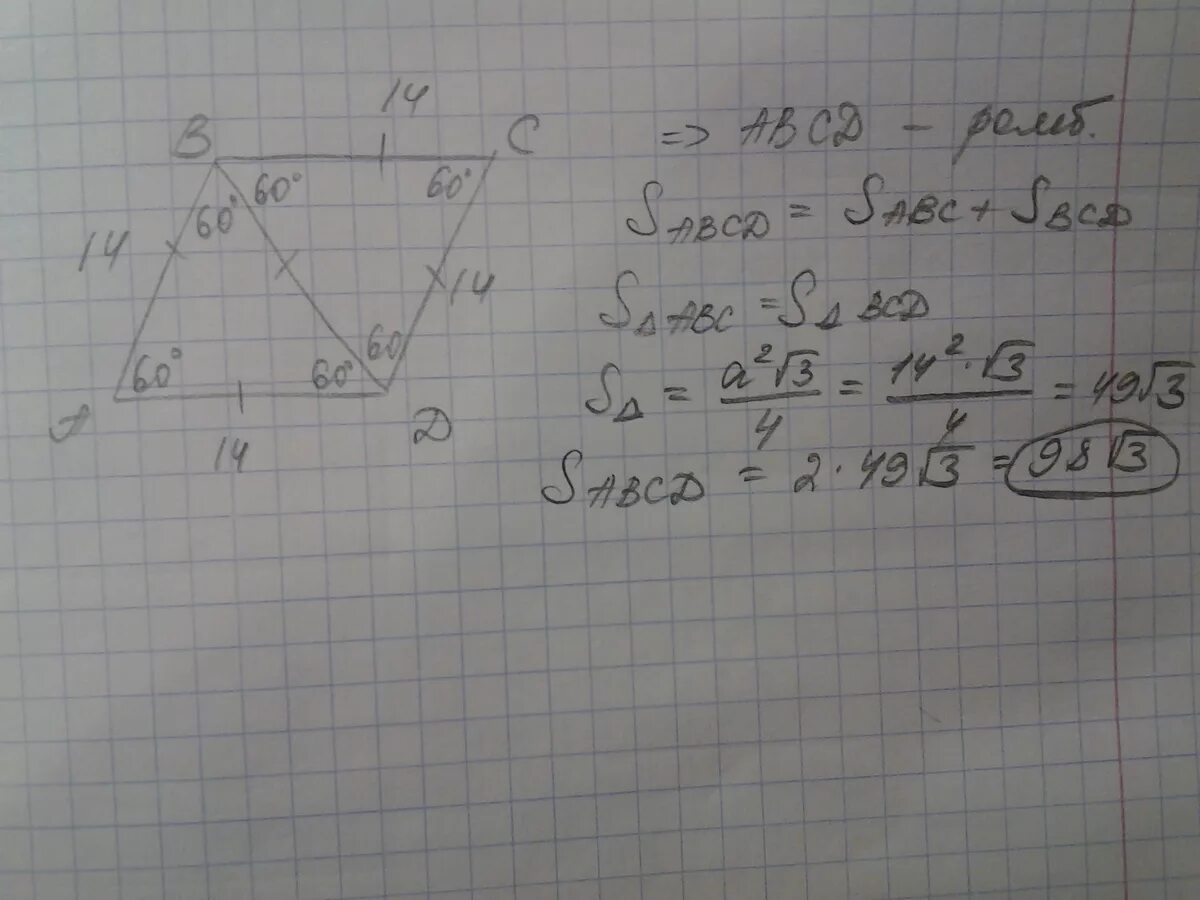 14
B
C
60°
60°
60°
14
14
60
60°
60°
A
D
14
=> ABCD - ромб.
S ABCD = S ABC + S BCD
S Δ ABC = S Δ BCD
S Δ = a²√3 / 4 = 14² · √3 / 4 = 49√3
S ABCD = 2 · 49√3 = 98√3